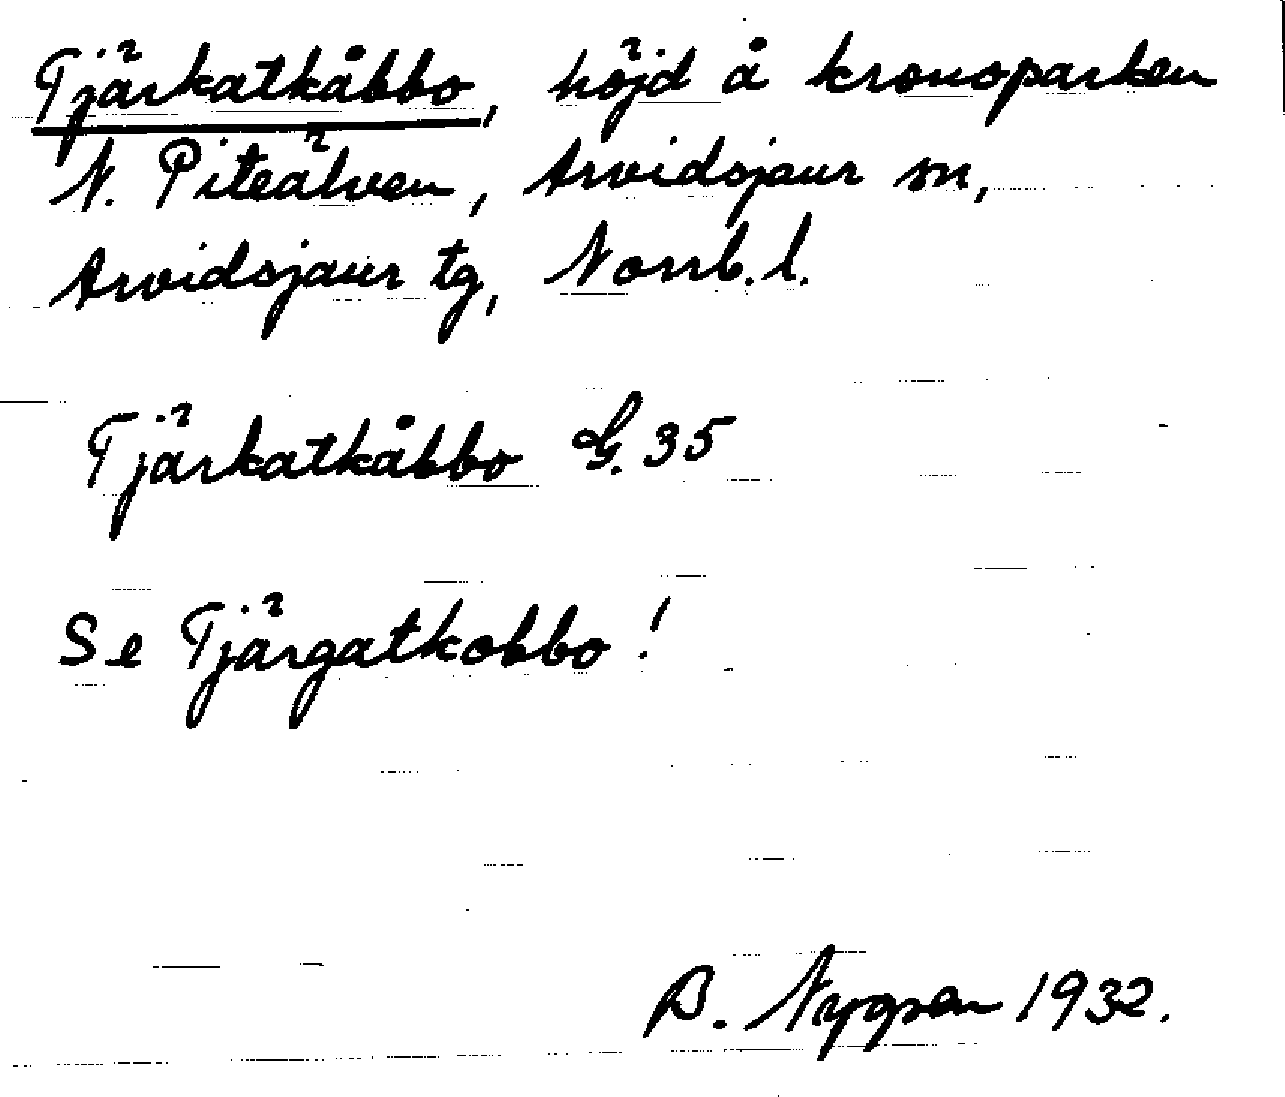 Tjärkatkåbbo, höjd å kronoparken
N. Piteälven, Arvidsjaur sn,
Arvidsjaur tg, Norrb. l.
Tjärkatkåbbo G. 35
Se Tjärgatkobbo!
B. Nygren 1932.